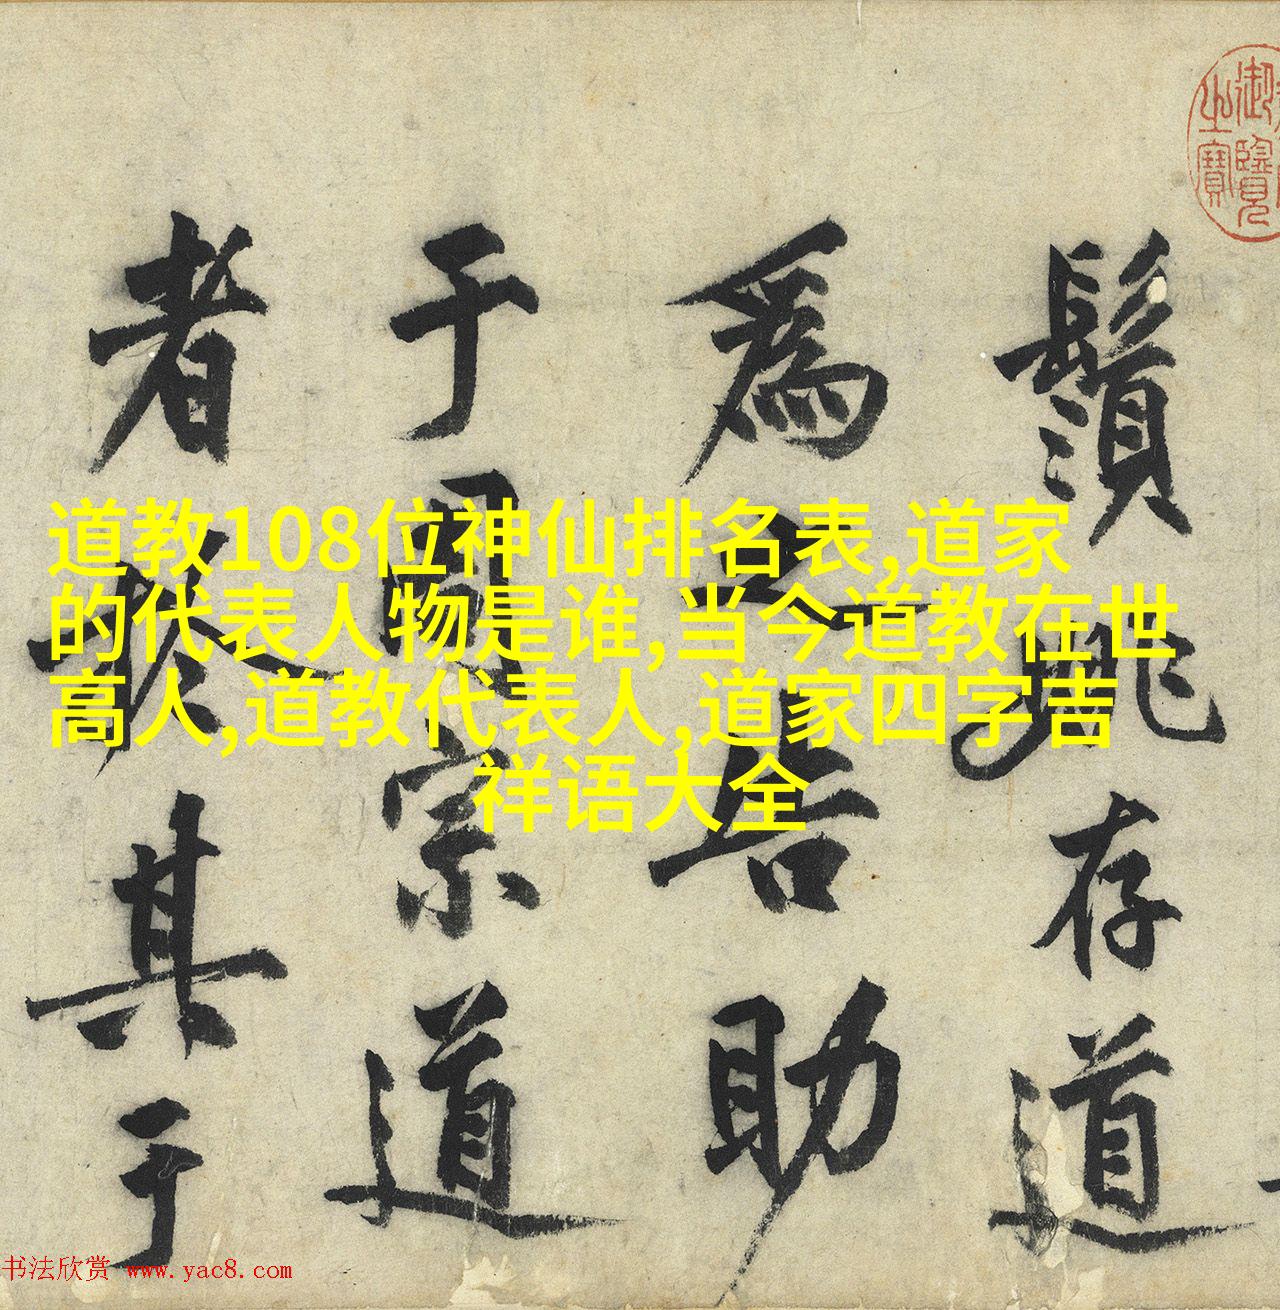 鬚眺存道
爲之告助
于周宗道
者於其于
御覽
之寶
道教108位神仙排名表,道家
的代表人物是谁,当今道教在世
高人,道教代表人,道家四字吉
祥语大全
书法欣赏 www.yac8.com